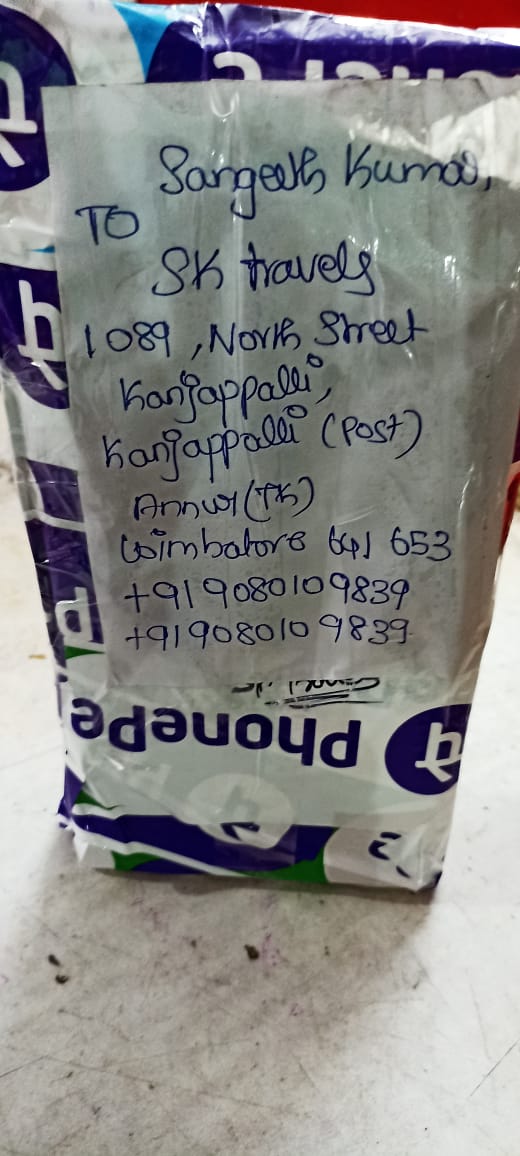 Sangeeth Kumar,
TO
SK travels
1089, North Street
Kanjappalli,
Kanjappalli (Post)
Annur (TK)
Coimbatore 641 653
+91 9080109839
+91 9080109839
PhonePe